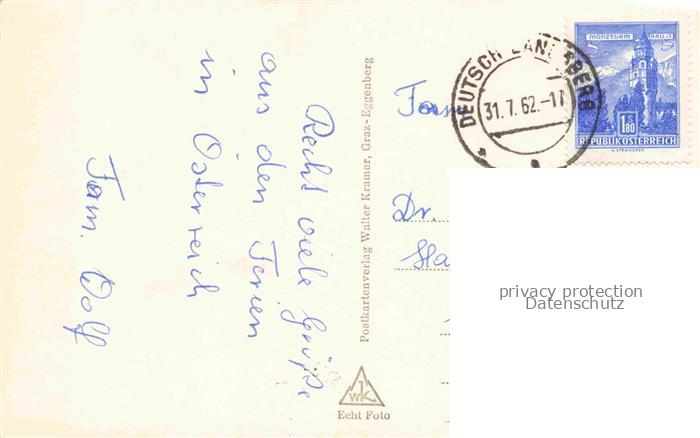 Recht viele Grüße
aus den Ferien
in Österreich
Fam. Wolf
Postkartenverlag Walter Kramer, Graz-Eggenberg
WK
Echt Foto
Fam
Dr.
DEUTSCHLANDSBERG
31.7.62.-17
MÜNZTURM HALL I.T.
1.80
REPUBLIK ÖSTERREICH
privacy protection
Datenschutz